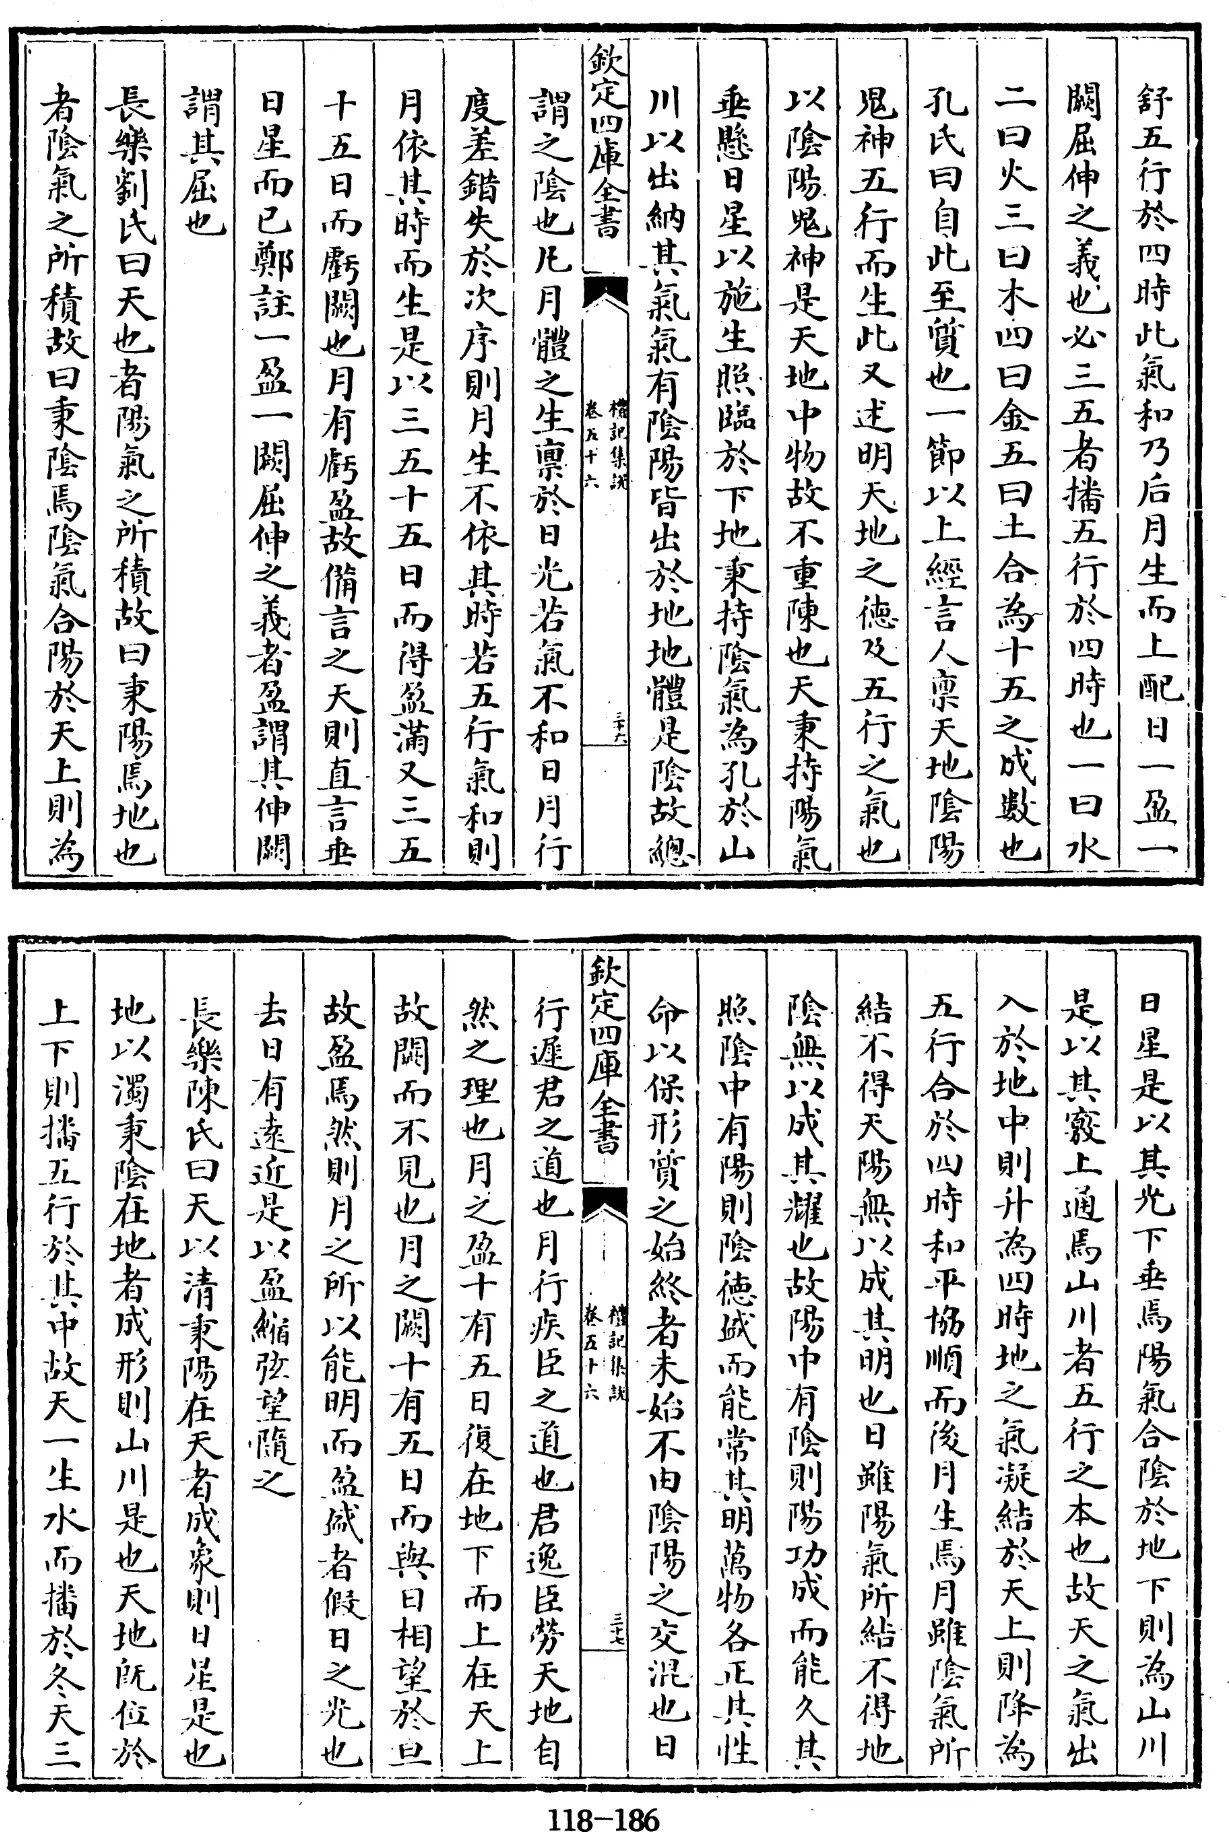 舒五行於四時此氣和乃后月生而上配日一盈一
闕屈伸之義也必三五者播五行於四時也一曰水
二曰火三曰木四曰金五曰土合為十五之成數也
孔氏曰自此至質也一節以上經言人禀天地陰陽
鬼神五行而生此又述明天地之德及五行之氣也
以陰陽鬼神是天地中物故不重陳也天秉持陽氣
垂懸日星以施生照臨於下地秉持陰氣為孔於山
川以出納其氣氣有陰陽皆出於地地體是陰故總
欽定四庫全書
禮記集説
卷五十六
三十六
謂之陰也凡月體之生禀於日光若氣不和日月行
度差錯失於次序則月生不依其時若五行氣和則
月依其時而生是以三五十五日而得盈滿又三五
十五日而虧闕也月有虧盈故備言之天則直言垂
日星而已鄭註一盈一闕屈伸之義者盈謂其伸闕
謂其屈也
長樂劉氏曰天也者陽氣之所積故曰秉陽焉地也
者陰氣之所積故曰秉陰焉陰氣合陽於天上則為
日星是以其光下垂焉陽氣合陰於地下則為山川
是以其竅上通焉山川者五行之本也故天之氣出
入於地中則升為四時地之氣凝結於天上則降為
五行合於四時和平協順而後月生焉月雖陰氣所
結不得天陽無以成其明也日雖陽氣所結不得地
陰無以成其耀也故陽中有陰則陽功成而能久其
照陰中有陽則陰德盛而能常其明萬物各正其性
命以保形質之始終者未始不由陰陽之交混也日
欽定四庫全書
禮記集説
卷五十六
三十七
行遲君之道也月行疾臣之道也君逸臣勞天地自
然之理也月之盈十有五日復在地下而上在天上
故闕而不見也月之闕十有五日而與日相望於旦
故盈焉然則月之所以能明而盈盛者假日之光也
去日有遠近是以盈縮弦望隨之
長樂陳氏曰天以清秉陽在天者成象則日星是也
地以濁秉陰在地者成形則山川是也天地既位於
上下則播五行於其中故天一生水而播於冬天三
118-186